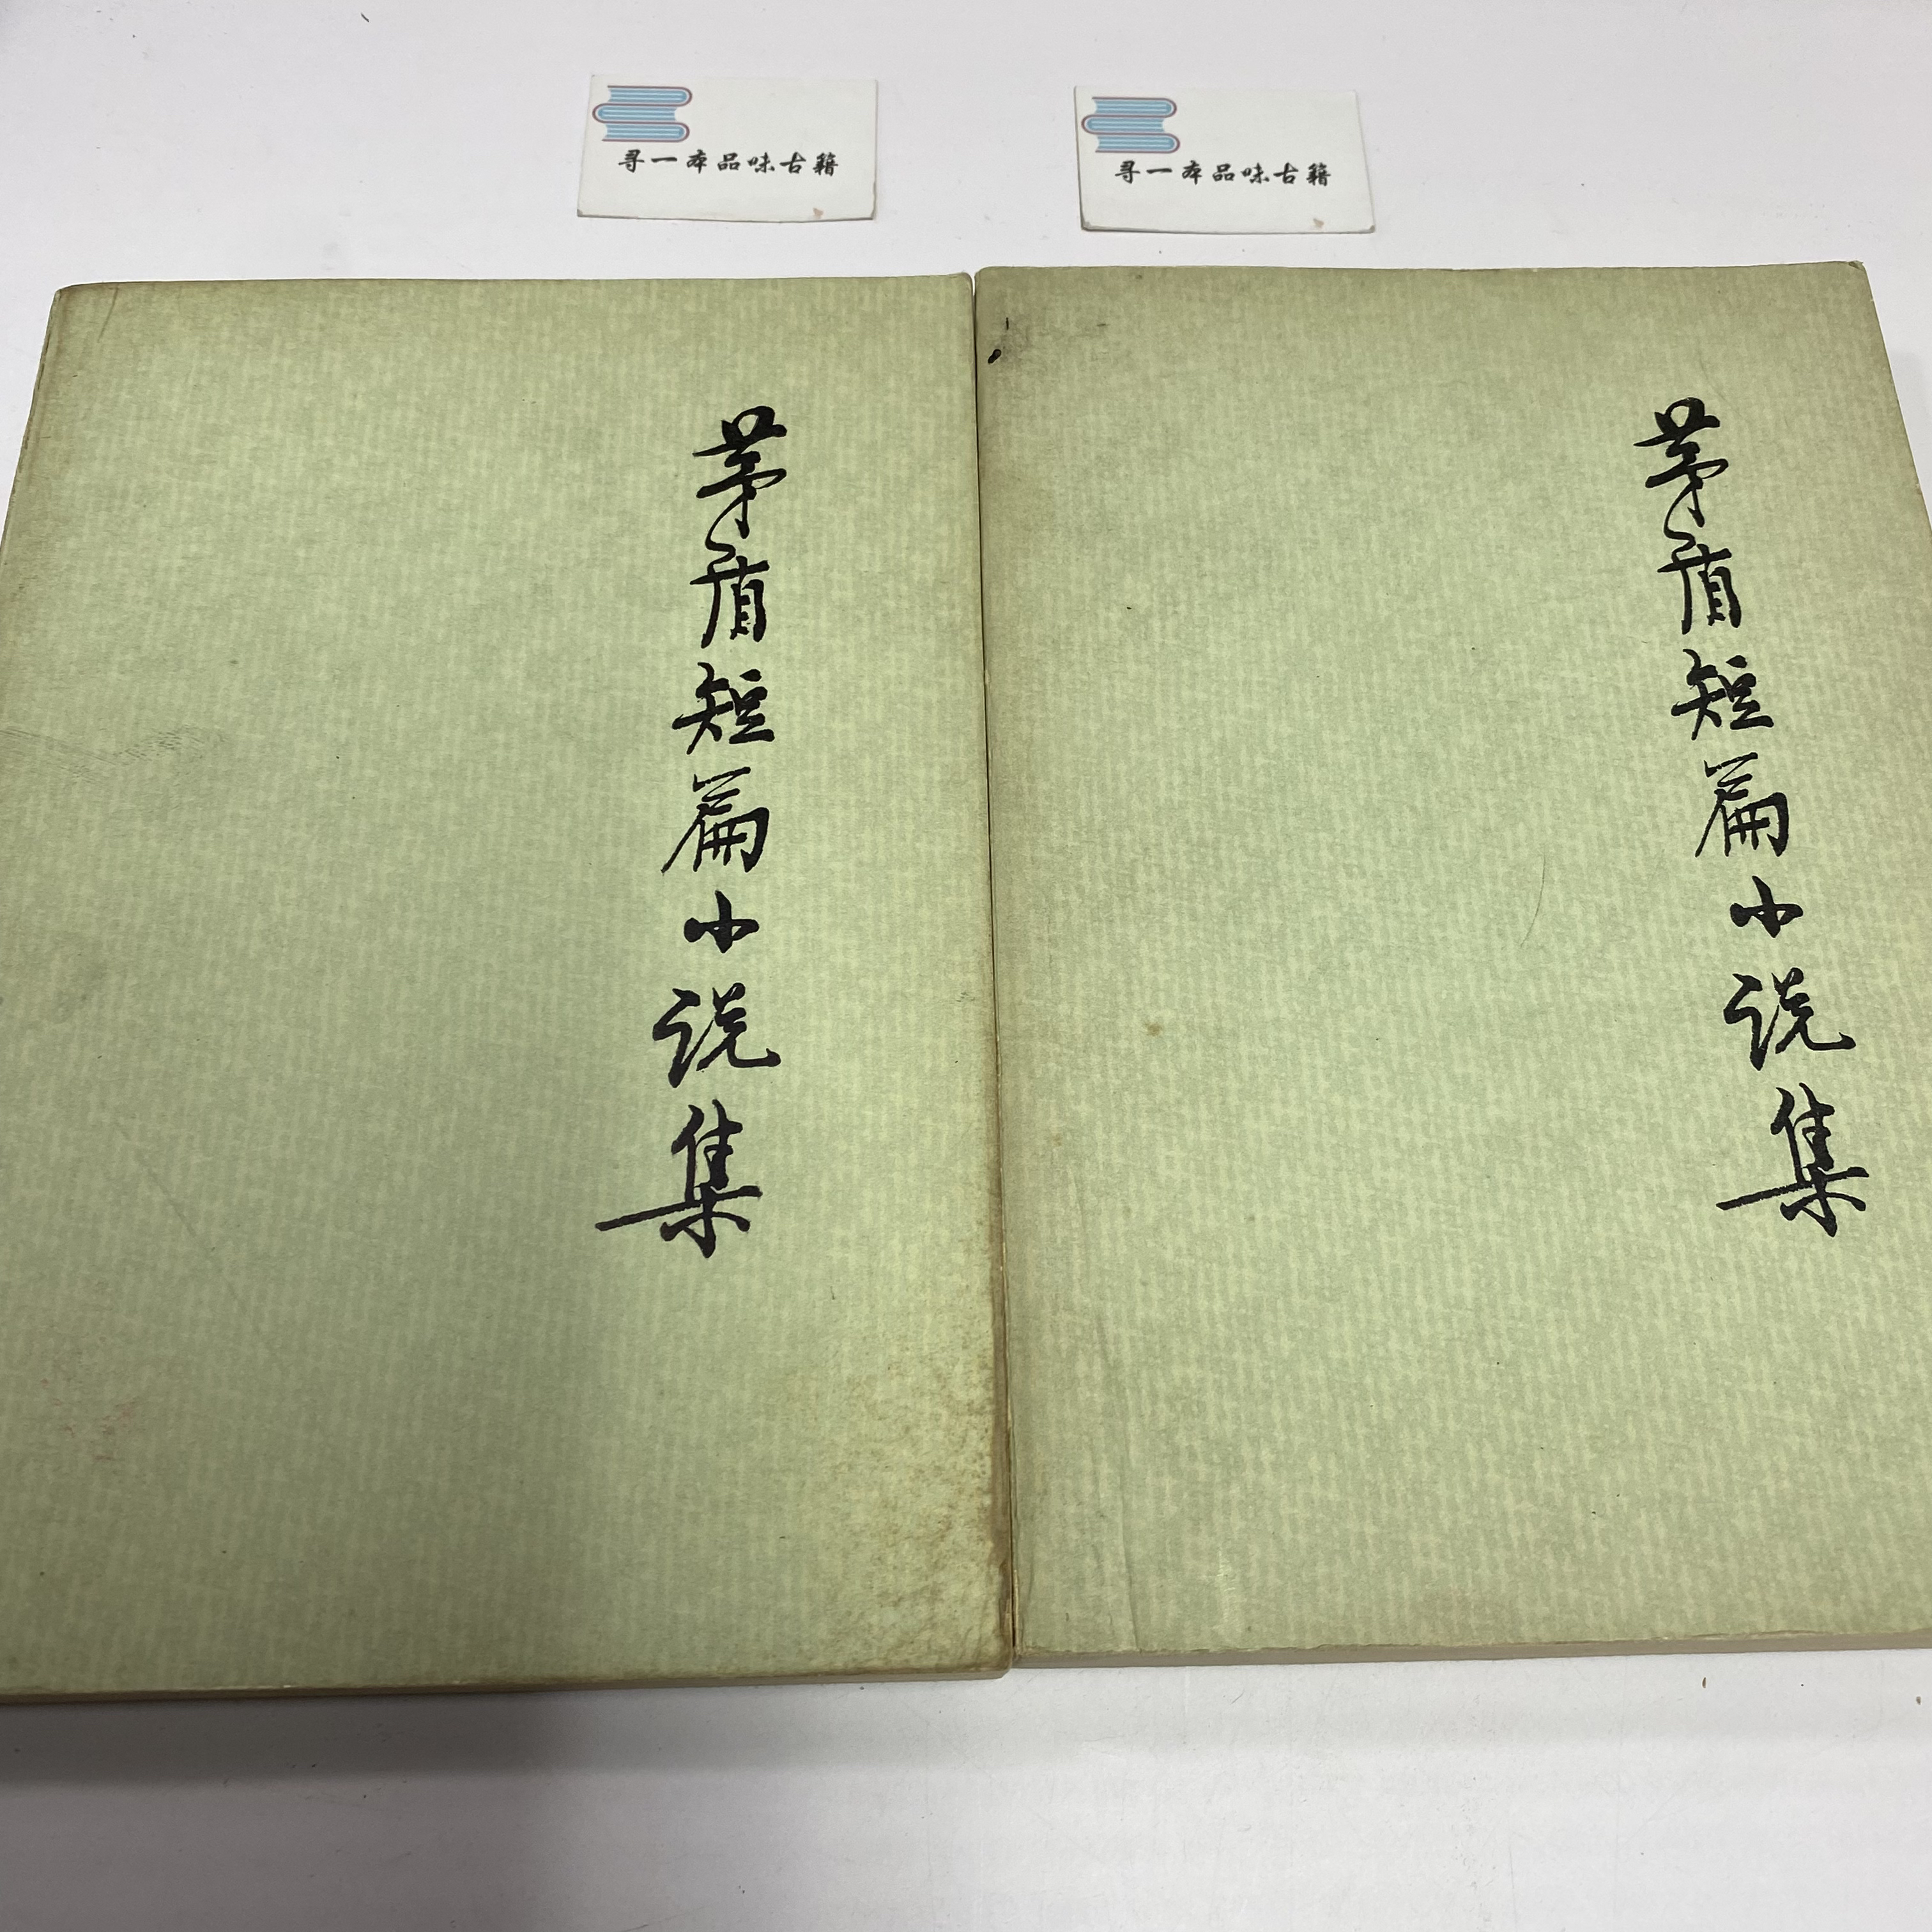 寻一本品味古籍
寻一本品味古籍
茅盾短篇小说集
茅盾短篇小说集